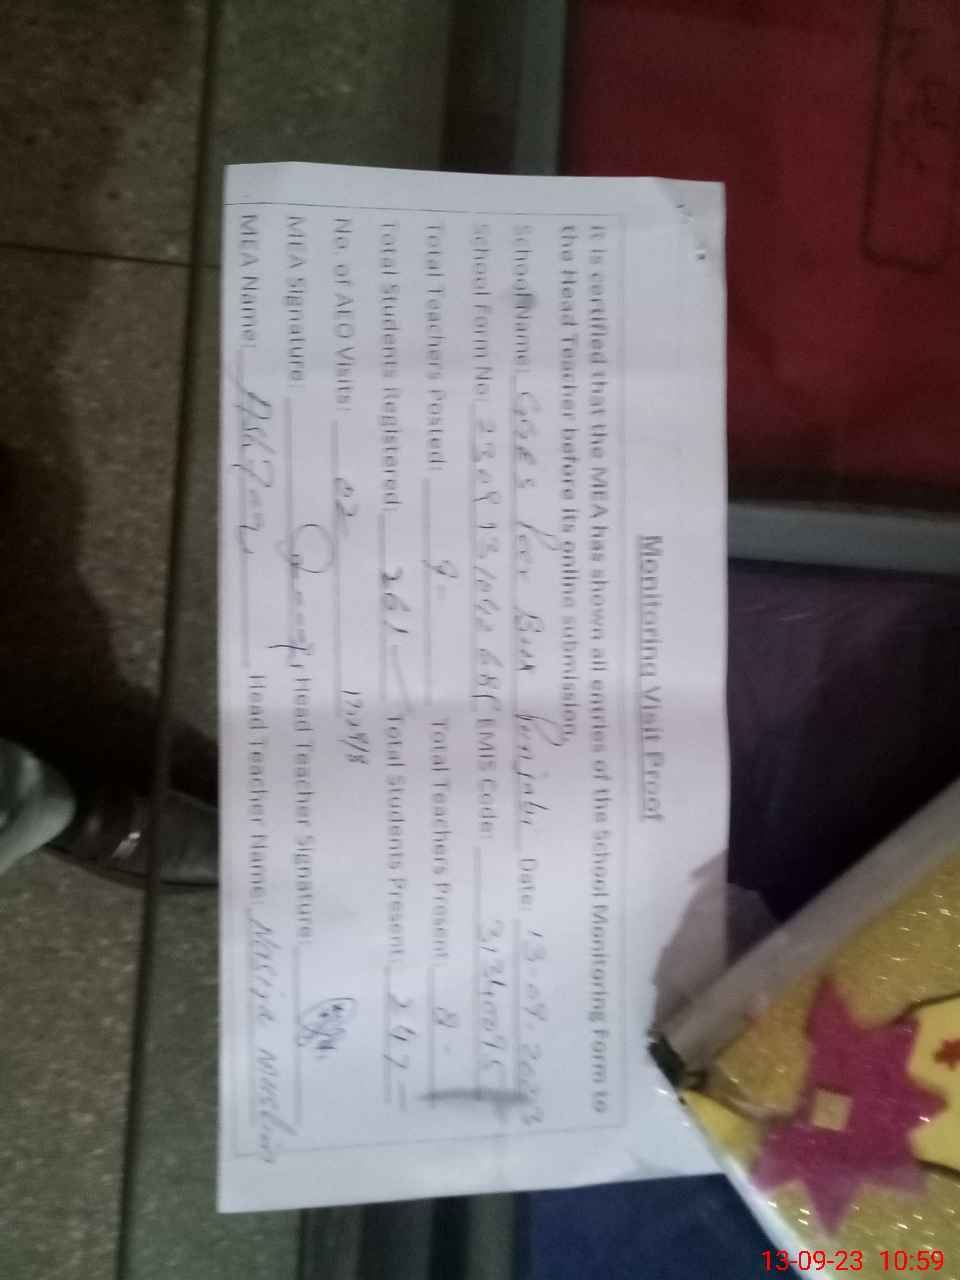 Monitoring Visit Proof
It is certified that the MEA has shown all entries of the School Monitoring Form to
the Head Teacher before its online submission.
School Name: Peer Bux Punjabi Date: 13-09-2023
School Form No: EMIS Code:
Total Teachers Posted: 9- Total Teachers Present 8-
Total Students Registered: 261 Total Students Present: 247
No. of AEO Visits: 02
MEA Signature: Head Teacher Signature:
MEA Name: Head Teacher Name:
13-09-23 10:59